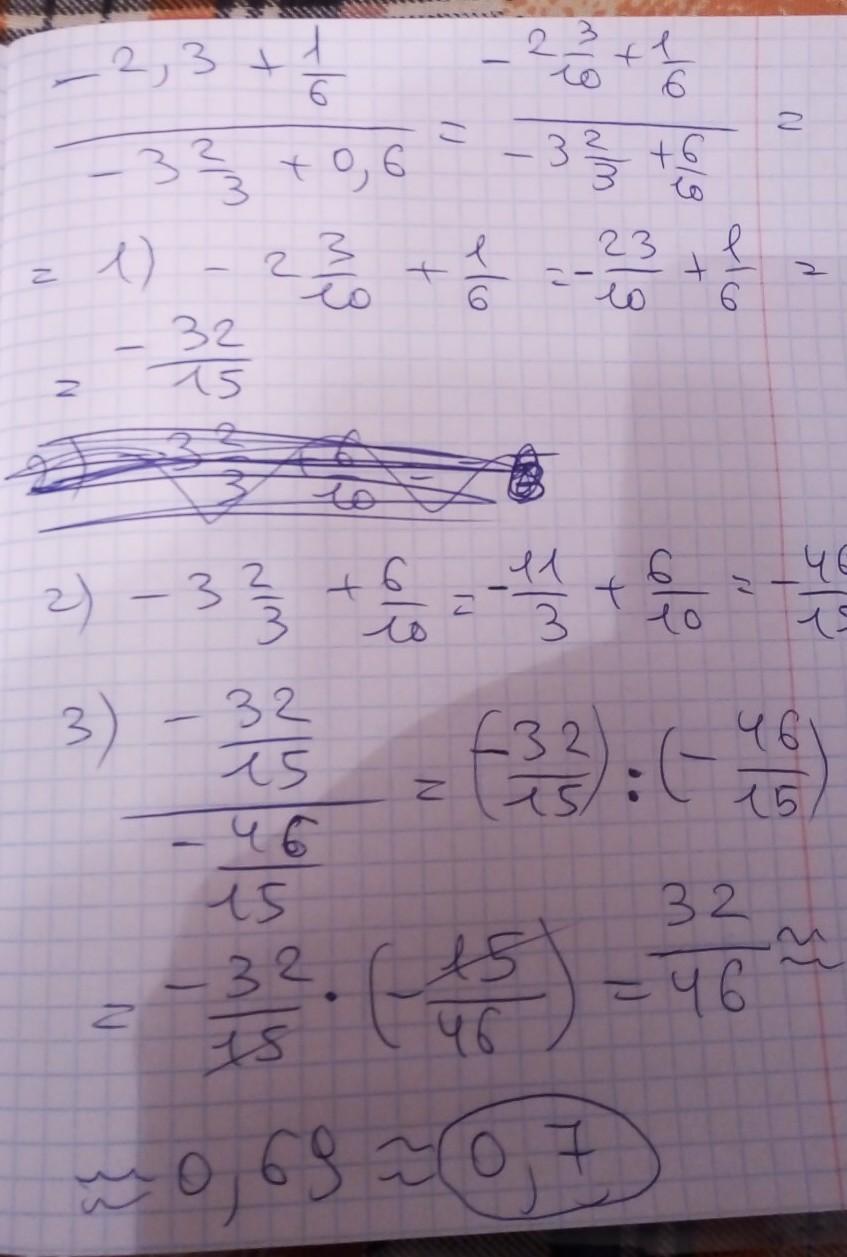 (-2,3 + 1/6)/(-3 2/3 + 0,6) = (-2 3/10 + 1/6)/(-3 2/3 + 6/10) =
= 1) - 2 3/10 + 1/6 = - 23/10 + 1/6 =
= - 32/15
2) - 3 2/3 + 6/10 = - 11/3 + 6/10 = - 46/15
3) (- 32/15)/(- 46/15) = (- 32/15) : (- 46/15)
= - 32/15 · (- 15/46) = 32/46 ≈
≈ 0,69 ≈ 0,7